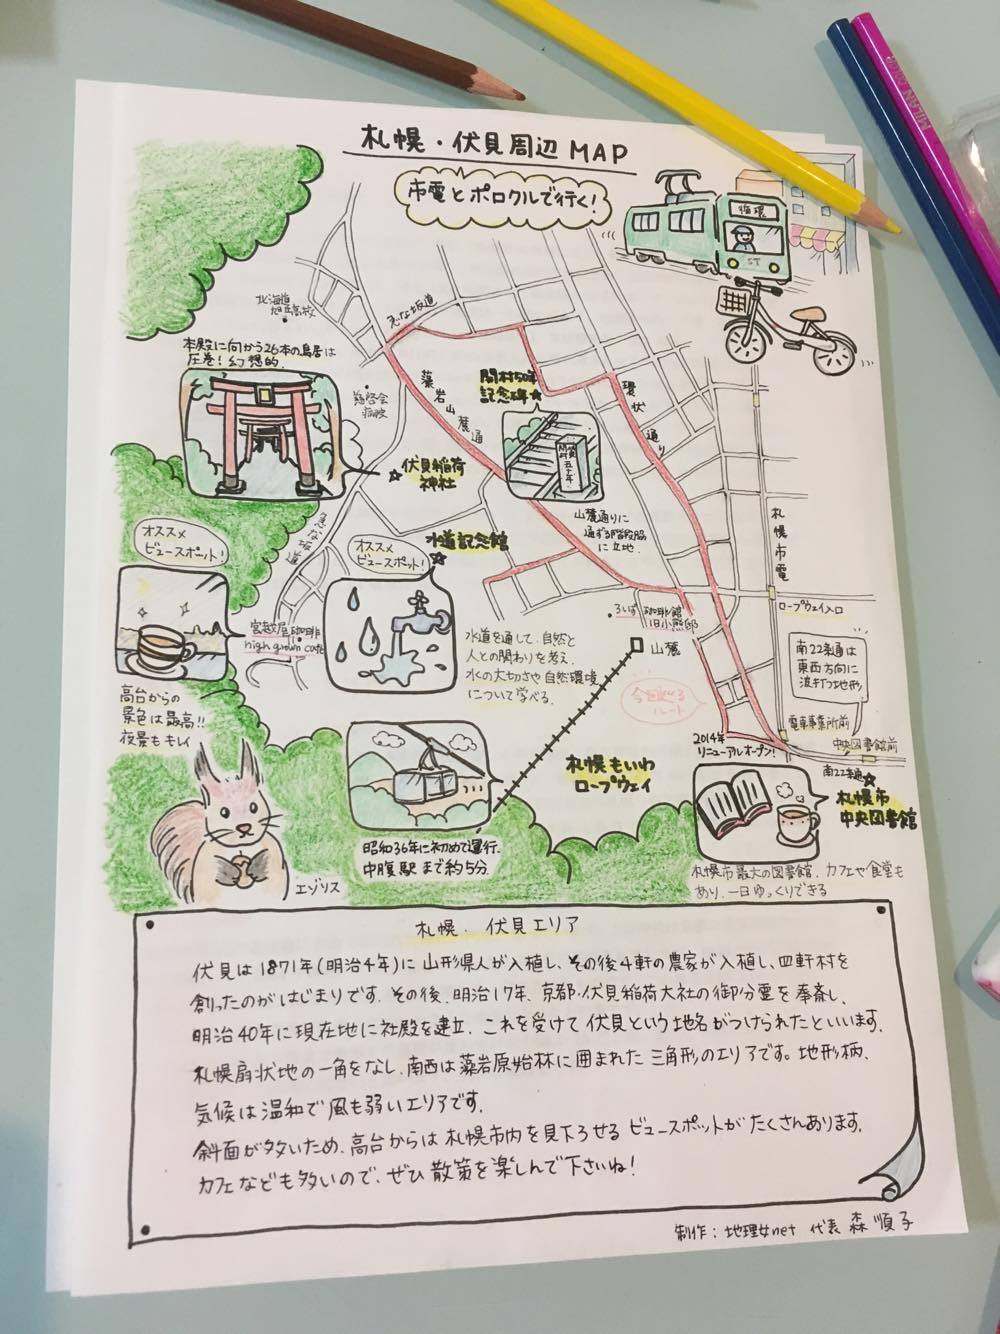 札幌・伏見周辺MAP
市電とポロクルで行く!
循環
ST
MILAN
北海道
旭丘高校
急な坂道
本殿に向かう26本の鳥居は
圧巻!幻想的.
慈啓会
病院
藻岩山麓通
開村50年
記念碑
環状通り
伏見稲荷
神社
山麓通りに
通ずる階段脇
に立地.
札幌市電
オススメ
ビュースポット!
急な坂道
オススメ
ビュースポット!
水道記念館
宮越屋珈琲
high grown cafe
ろいず珈琲館
旧小熊邸
ロープウェイ入口
水道を通して、自然と
人との関わりを考え、
水の大切さや自然環境
について学べる.
山麓
南22条通は
東西方向に
波打つ地形
高台からの
景色は最高!!
夜景もキレイ
今回巡る
ルート
電車事業所前
2014年
リニューアルオープン!
中央図書館前
南22条通
札幌もいわ
ロープウェイ
札幌市
中央図書館
昭和36年に初めて運行.
中腹駅まで約5分.
札幌市最大の図書館.カフェや食堂も
あり、一日ゆっくりできる
エゾリス
札幌・伏見エリア
伏見は1871年(明治4年)に山形県人が入植し、その後4軒の農家が入植し、四軒村を
創ったのがはじまりです.その後、明治17年、京都・伏見稲荷大社の御分霊を奉斎し、
明治40年に現在地に社殿を建立.これを受けて伏見という地名がつけられたといいます.
札幌扇状地の一角をなし、南西は藻岩原始林に囲まれた三角形のエリアです。地形柄、
気候は温和で風も弱いエリアです.
斜面が多いため、高台からは札幌市内を見下ろせるビュースポットがたくさんあります.
カフェなども多いので、ぜひ散策を楽しんで下さいね!
制作:地理女net 代表 森 順子